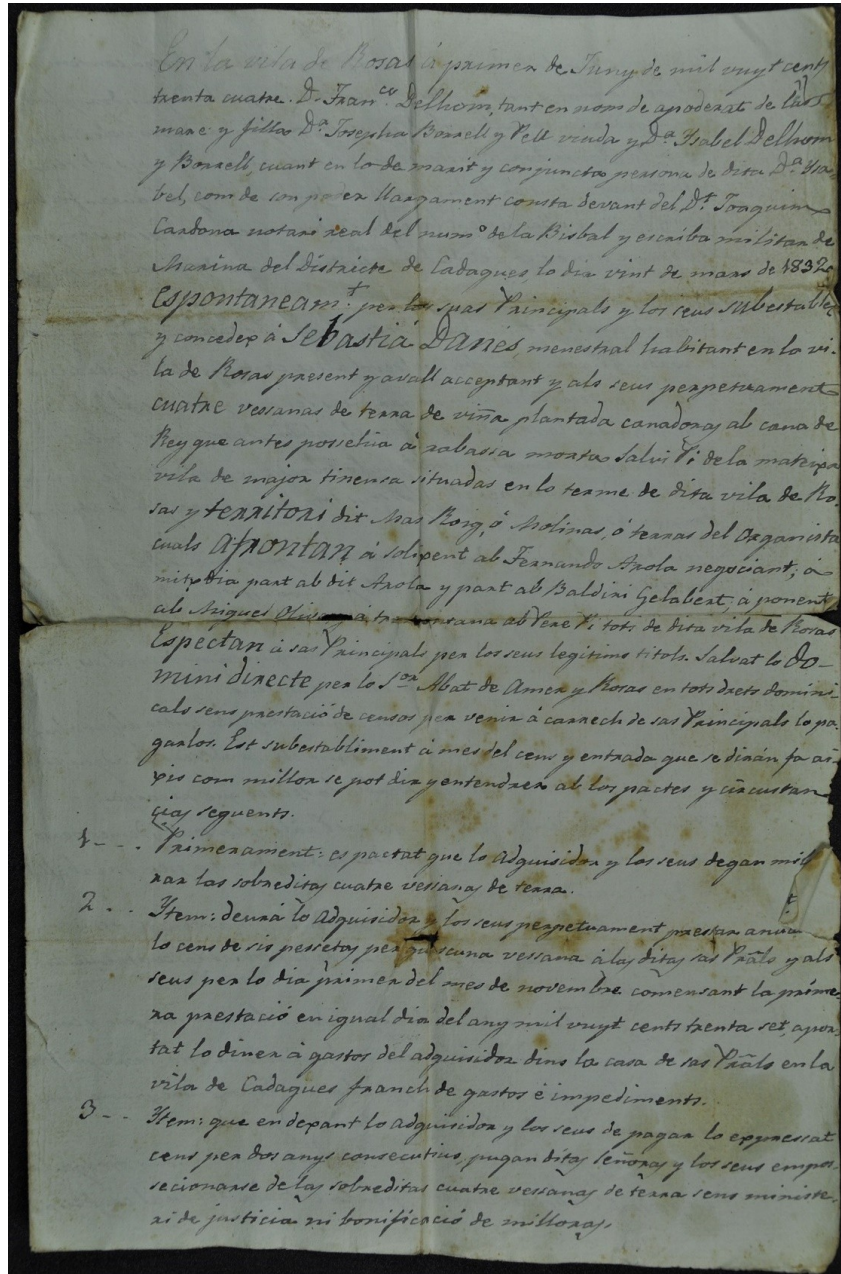 En la vila de Rosas á primer de Juny de mil vuyt cents
trenta cuatre. Dn. Franco. Delhom, tant en nom de apoderat de las
mare y filla Da. Josepha Borrell y Pell viuda y Da. Ysabel Delhom
y Borrell, cuant en lo de marit y conjuncta persona de dita Da. Ysa-
bel, com de son poder llargament consta devant del Dt. Joaquim
Cardona notari real del numo. de la Bisbal y escriba militar de
Marina del Districte de Cadaques, lo dia vint de mars de 1832.
Espontaneamt. per los suas Principals y los seus subestableix
y concedex á Sebastiá Danés, menestral habitant en la vi-
la de Rosas present y avall acceptant y als seus perpetuament
cuatre vessanas de terra de viña plantada canadoras ab cana de
Rey que antes posselua á rabassa morta Salvi Pi de la mateixa
vila de major tinensa situadas en lo terme de dita vila de Ro-
sas y territori dit Mas Roig, ó Molinas, ó terras del Organista
cuals afrontan á solixent ab Fernando Arola negociant; á
mitxdia part ab dit Arola y part ab Baldiri Gelabert, á ponent
ab Miquel á tramonsana ab Pere Pi tots de dita vila de Rosas
Espectan á sas Principals per los seus legitims titols. Salvat lo do-
mini directe per lo Sor. Abat de Amer y Rosas en tots drets domini-
cals sens prestació de censos per venir á carrech de sas Principals lo pa-
garlos. Est subestabliment á mes del cens y entrada que se dirán fa ai-
xis com millor se pot dir y entendrer ab los pactes y circustan
cias seguents.
1 - - . Primerament: es pactat que lo adquisidor y los seus degan millo
rar las sobreditas cuatre vessanas de terra.
2 - . Ytem: deurá lo adquisidor y los seus perpetuament prestar anualt.
lo cens de sis pessetas per quiscuna vessana á las ditas sas Prals y als
seus per lo dia primer del mes de novembre comensant la prime-
ra prestació en igual dia del any mil vuyt cents trenta set, apor-
tat lo diner á gastos del adquisidor dins la casa de sas Prals en la
vila de Cadaques franch de gastos é impediments.
3 - - Ytem: que en dexant lo adquisidor y los seus de pagar lo expressat
cens per dos anys consecutius, pugan ditas señoras y los seus empos-
secionarse de las sobreditas cuatre vessanas de terra sens ministe-
ri de justicia ni bonificació de milloras.